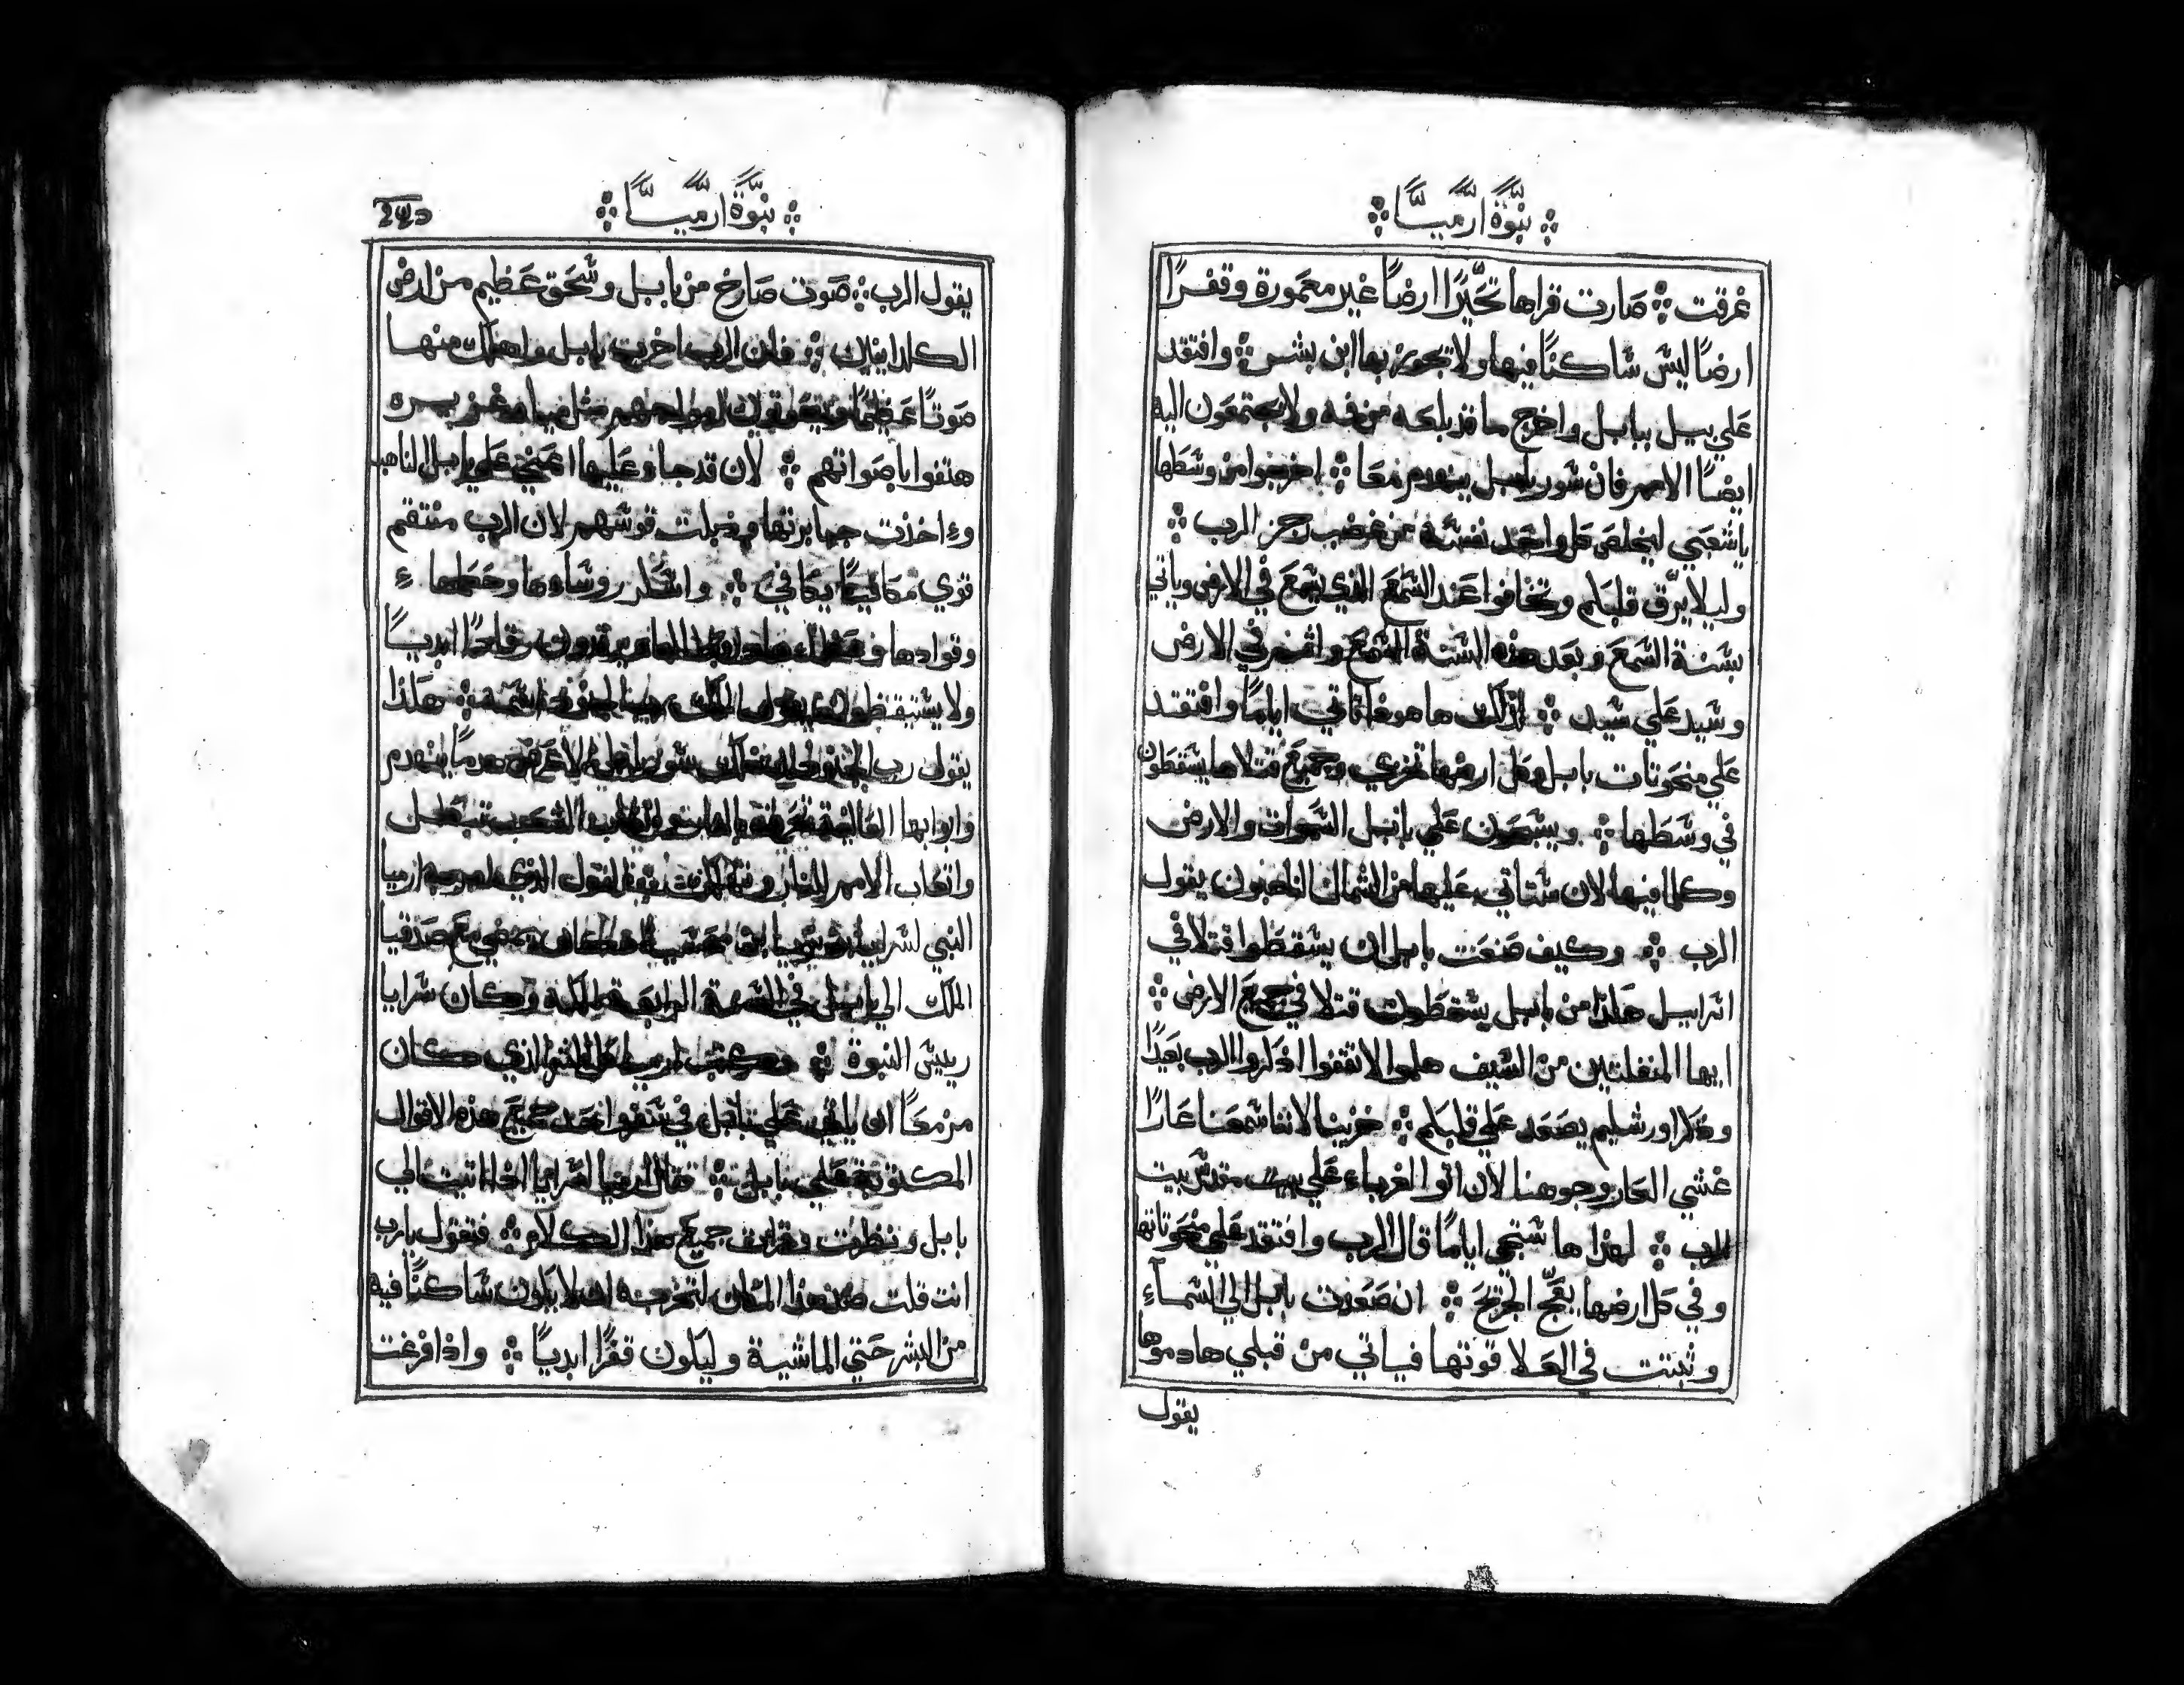 نبوة ارميا
غرقت ※ صارت قراها تحيرًا ارضًا غير معمورة وقفرًا
ارضًا ليش شاكنًا فيها ولا تجوز بها ابن بشر ※ وافتقد
علي بيل ببابل واخرج ما قد بلعه من فمه ولا يجتمعون اليه
ايضًا الامم فان شور بابل ينهدم معًا ※ اخرجوا من وشطها
ياشعبي ليخلص كل واحد نفشه من غضب رجز الرب ※
وليلا يرق قلبكم وتخافوا عند الشمع الذي يشمع في الارض وياتي
بشنة الشمع وبعد هذه الشنة الشمع واثم في الارض
وشيد علي شيد ※ لذلك ها هوذا تاتي ايامًا وافتقد
علي منحوتات بابل وكل ارضها تخزي وجميع قتلاها يشقطون
في وشطها ※ ويشبحون علي بابل الشموات والارض
وكلما فيها لان شتاتي عليها من الشمال الناهبون يقول
الرب ※ وكيف صنعت بابل ان يشقطوا قتلا في
اشراييل هكذا من بابل يشقطون قتلا في جميع الارض ※
ايها المنفلتين من الشيف هلموا لا تقفوا اذكروا الرب بعيدًا
وذكر اورشليم يصعد علي قلبكم ※ خزينا لاننا شمعنا عارًا
غشي العار وجوهنا لان اتوا الغرباء علي بيت مقدش بيت
الرب ※ لهذا ها شتجي ايامًا قال الرب وافتقد علي منحوتاتها
وفي كل ارضها يعج الجريح ※ ان صعدت بابل الي الشماء
وثبتت في العلا قوتها فياتي من قبلي هادموها
يقول
نبوة ارميا
يقول الرب ※ صوت صارخ من بابل وشحق عظيم من ارض
الكلدانيين ※ فان الرب اخرب بابل واهلك منها
صوتًا عظيمًا مثل مياه غزيره
هتفوا باصواتهم ※ لان قد جاء عليها اعني علي بابل الناهب
واخذت جبابرتها وذبلت قوشهم لان الرب منتقم
قوي مكافيًا يكافي ※ واشكر روشاءها وحكماءها
وقوادها رقادًا ابديًا
ولا يشتيقظون يقول الملك رب الجنود اشمه ※ هكذا
يقول رب الجنود شور بابل الاعرض هدمًا ينهدم
وابوابها العالية تحرق بالنار واتعاب الشعب تبطل
واتعاب الامم للنار القول الذي ارميا
النبي لشرايا مضي مع صدقيا
الملك الي بابل في الشنة الرابعة لملكه وكان شرايا
رييش النبوة ※ وكتب ارميا كل الشر الذي كان
مزمعًا ان ياتي علي بابل في شفر واحد جميع هذه الاقوال
المكتوبة علي بابل ※ فقال ارميا لشرايا اذا اتيت الي
بابل ونظرت وقرات جميع هذا الكلام ※ فتقول يارب
انت قلت هذا المكان لتخربه ان لا يكون شاكنًا فيه
من البشر حتي الماشية وليكون قفرًا ابديًا ※ واذا فرغت